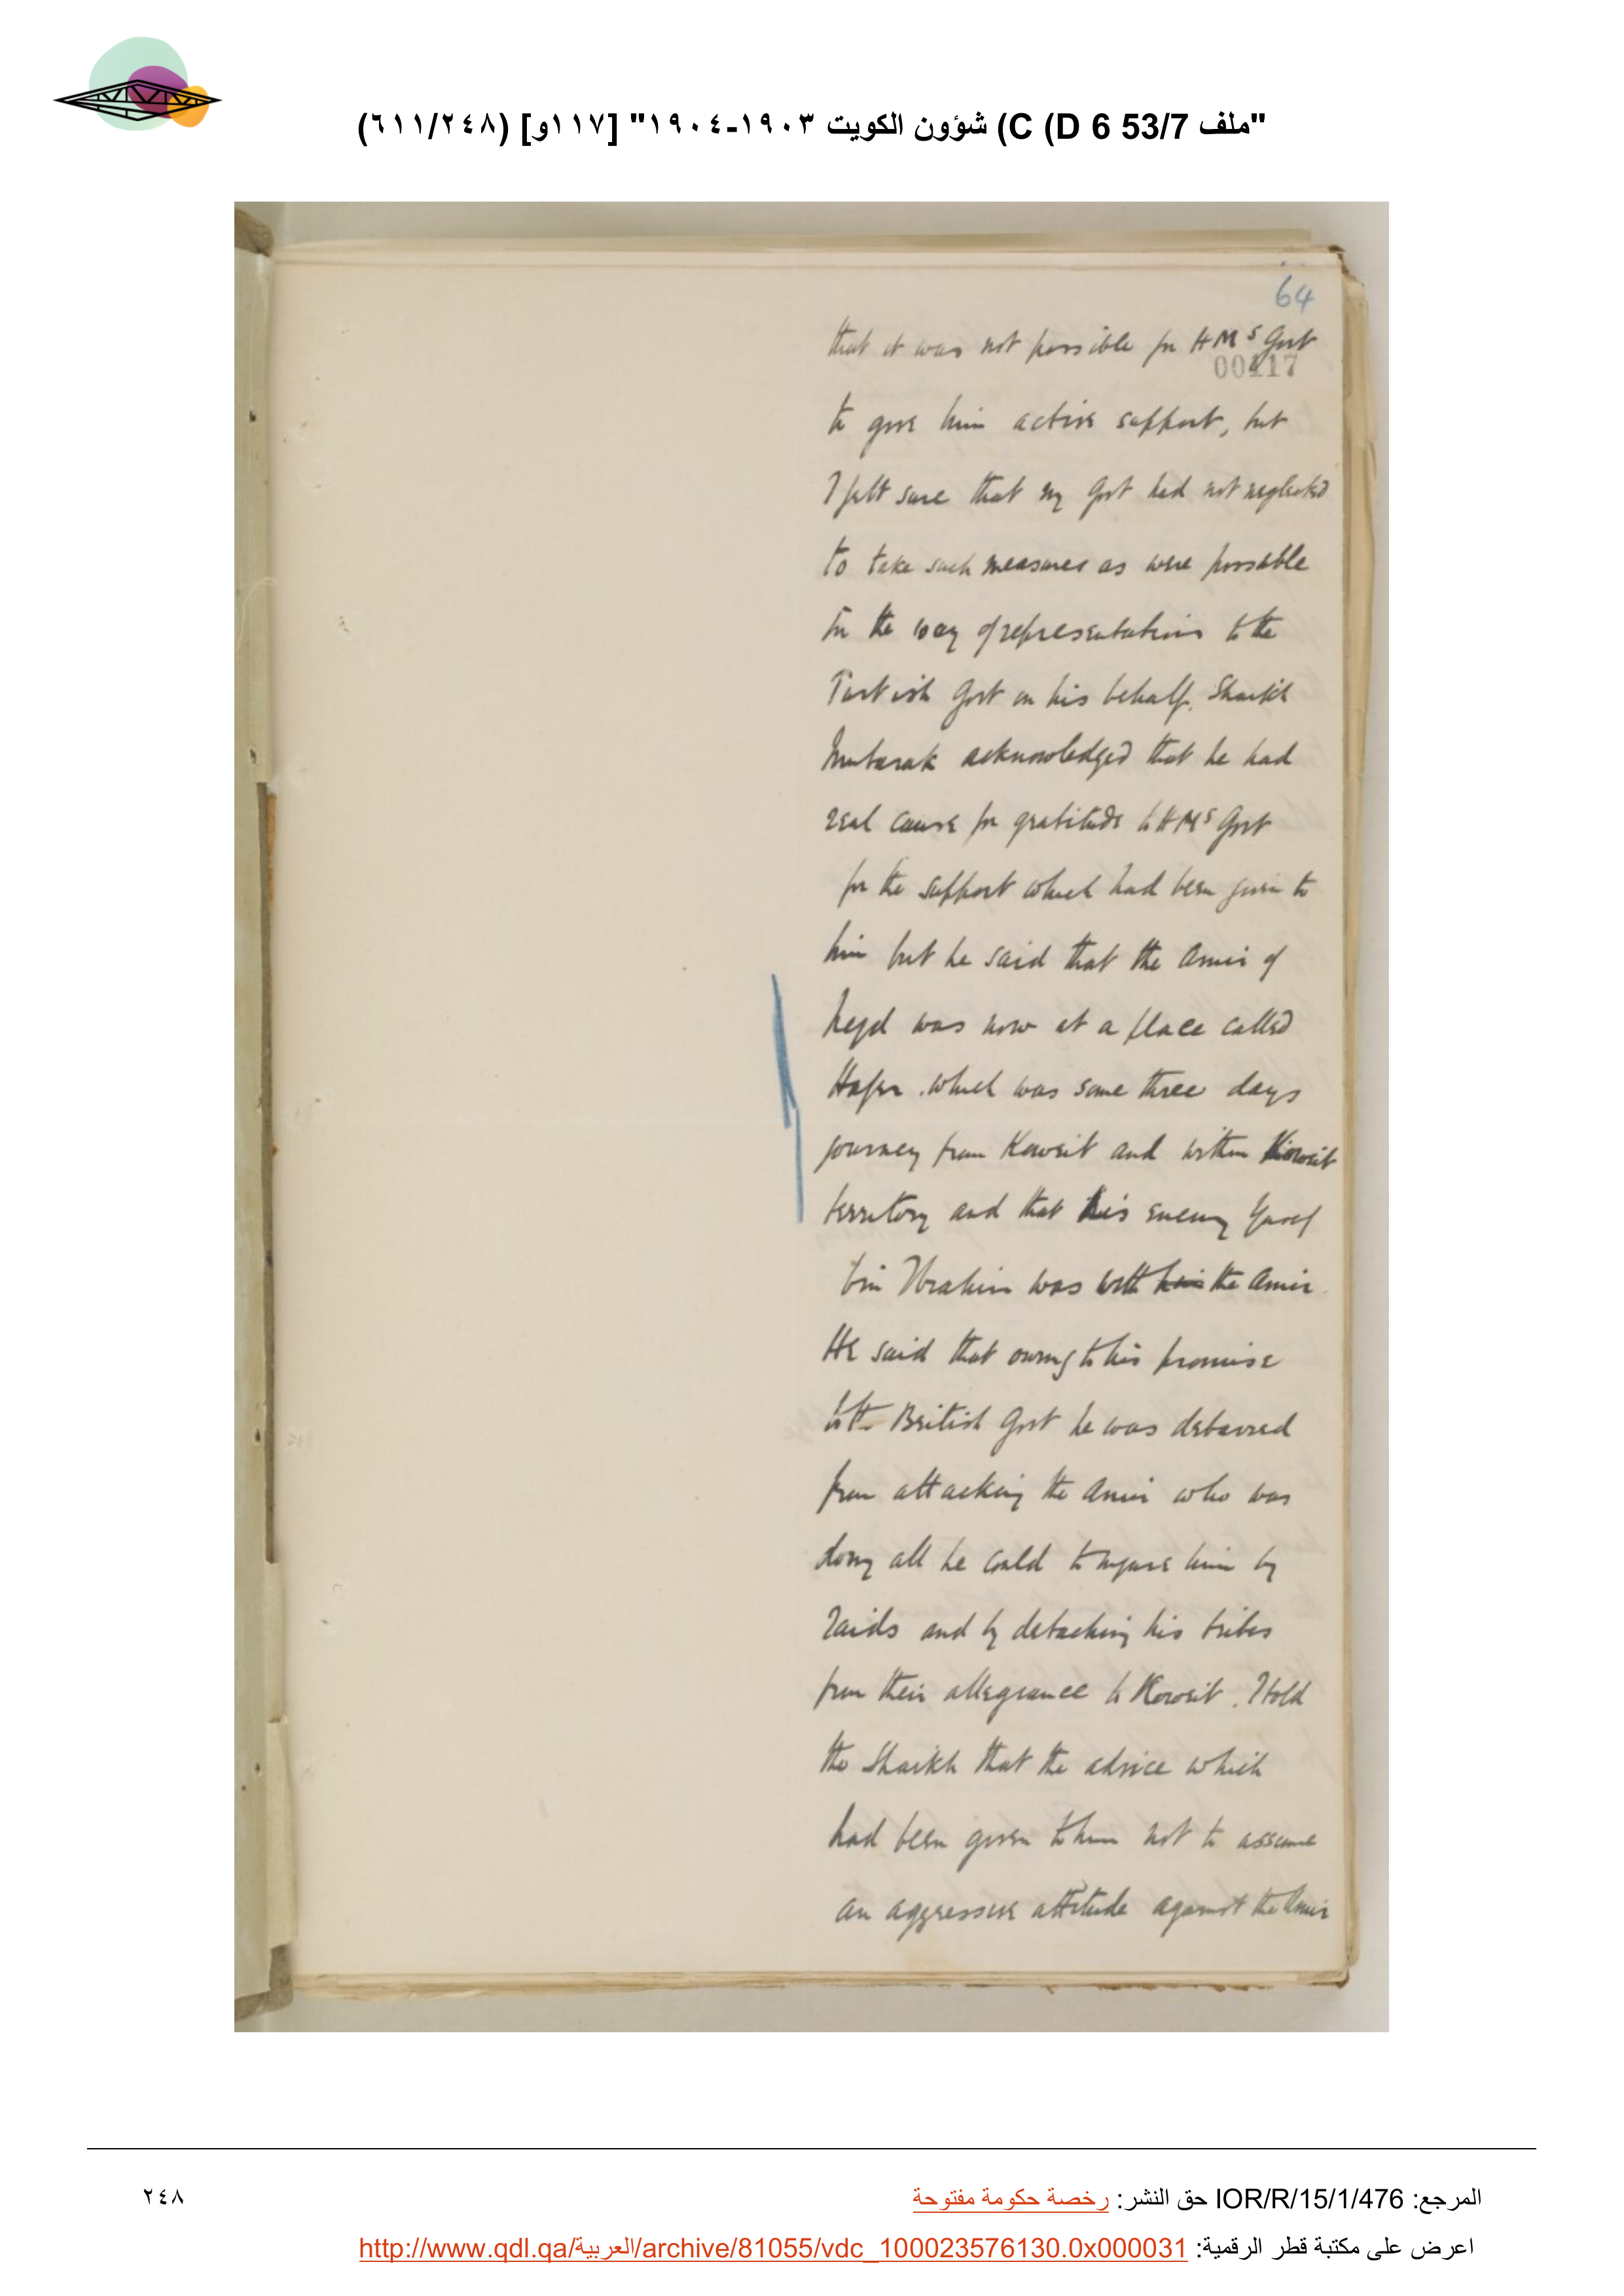 "ملف 53/7 C (D 6) شؤون الكويت ١٩٠٣-١٩٠٤" [١١٧و] (٦١١/٢٤٨)
64
that it was not possible for HM's Govt
00117
to give him active support, but
I felt sure that my Govt had not neglected
to take such measures as were possible
in the way of representations to the
Turkish Govt on his behalf. Shaikh
Mubarak acknowledged that he had
real cause for gratitude to HM's Govt
for the support which had been given to
him but he said that the Amir of
Nejd was now at a place called
Hafer. which was some three days
journey from Koweit and within Koweit
territory and that his enemy Yusef
bin Ibrahim was with him the Amir
He said that owing to his promise
to the British Govt he was debarred
from attacking the Amir who was
doing all he could to injure him by
raids and by detaching his tribes
from their allegiance to Koweit. I told
the Shaikh that the advice which
had been given to him not to assume
an aggressive attitude against the Amir
المرجع: IOR/R/15/1/476 حق النشر: رخصة حكومة مفتوحة
٢٤٨
اعرض على مكتبة قطر الرقمية: http://www.qdl.qa/العربية/archive/81055/vdc_100023576130.0x000031